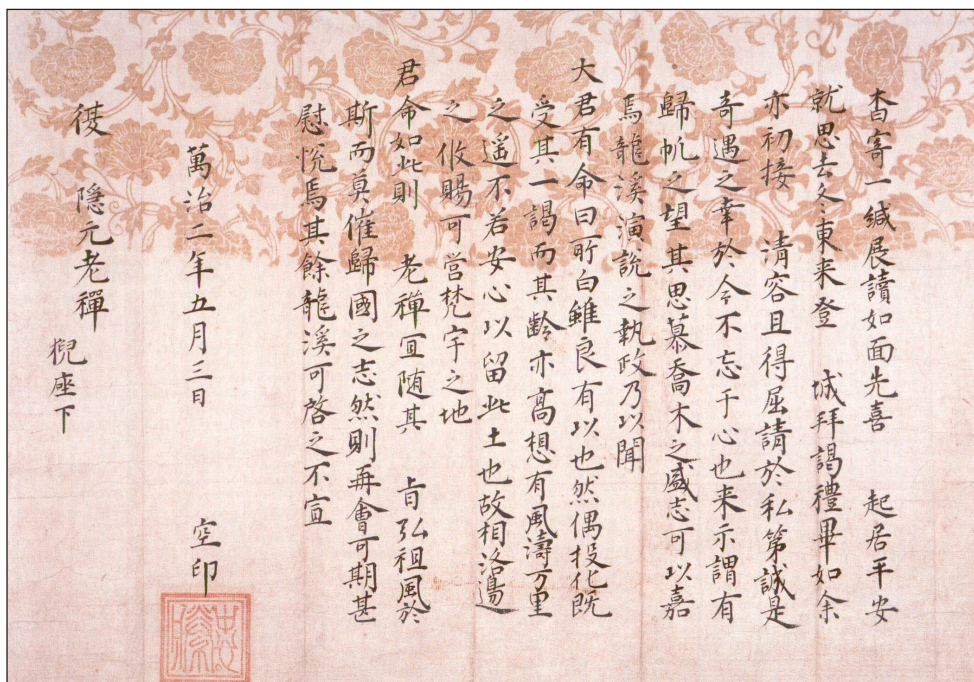 杳寄一緘展讀如面先喜　起居平安
就思去冬東来登　城拜謁禮畢如余
亦初接　清容且得屈請於私第誠是
奇遇之幸於今不忘于心也来示謂有
歸帆之望其思慕喬木之盛志可以嘉
焉龍溪演説之執政乃以聞
大君有命曰所白雖良有以也然偶投化既
受其一謁而其齡亦高想有風濤万里
之遥不若安心以留此土也故相洛邊
之攸賜可営梵宇之地
君命如此則　老禪宜随其　旨弘祖風於
斯而莫催歸國之志然則再會可期甚
慰悦焉其餘龍溪可啓之不宣
萬治二年五月三日　空印
復　隠元老禪　猊座下